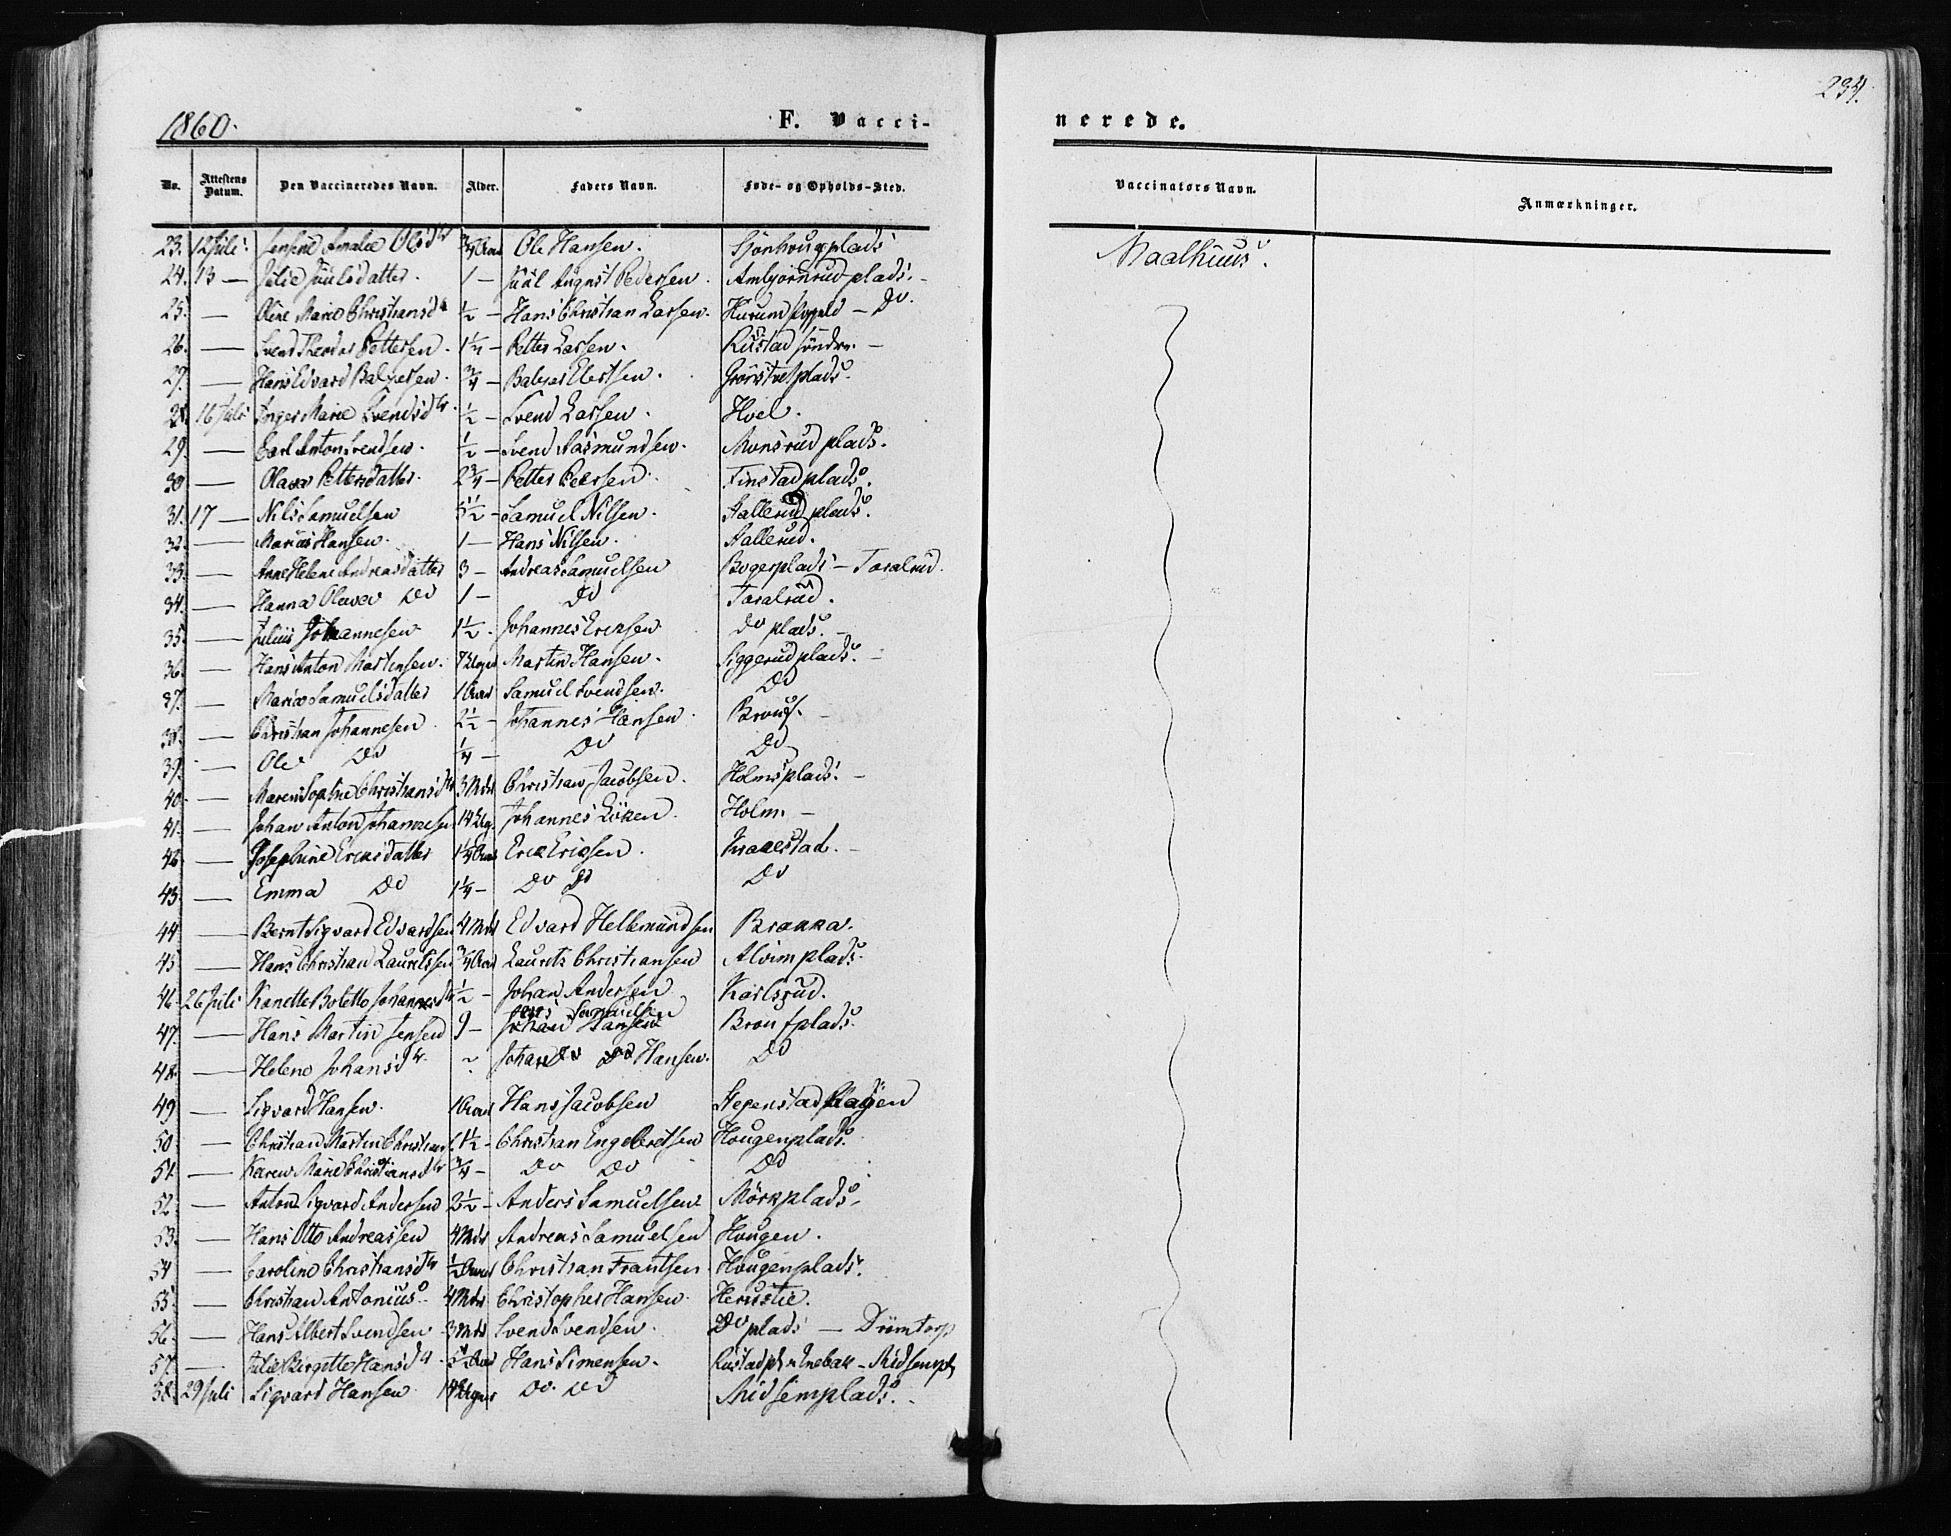 234.
1860. F. Vaccinerede.
No. Attestens Datum. Den Vaccineredes Navn. Alder. Faders Navn. Føde- og Opholds-Sted. Vaccinators Navn. Anmærkninger.
23. 12 Juli. Jensine Amalie Olsdtr 3/4 Aar Ole Hansen. plads Maalhuus.
24. 13 — Julie Juulsdatter. 1 — Juul August Pedersen. plads. —
25. — Oline Marie Christiansd 1/2 — Hans Christian Larsen. Hurum — Do.
26. — Svend Theodor Pettersen. 1 1/4 — Petter Larsen. Rustad søndre. —
27. — Hans Edvard Balzersen. 3/4 — Balzer Ellertsen. plads.
28. 16 Juli Inger Marie Svendsdtr. 1/2 — Svend Larsen. Hvel.
29. — Carl Anton Svendsen. 1/2 — Svend Aasmundsen. Monsrud plads.
30 — Olava Pettersdatter. 2 3/4 — Petter Pedersen. Finstadplads.
31. 17 — Nils Samuelsen 5 1/2 — Samuel Nilsen. Aallerud plads.
32. — Marius Hansen. 1 — Hans Nilsen. Aallerud.
33. — Anne Helene Andreasdatter 3 — Andreas Samuelsen Bogerplads — Taralrud.
34. — Hanna Olava Do 1 — Do Taralrud.
35. — Julius Johannesen 1 1/2 — Johannes Ericsen Do plads. —
36. — Hans Anton Martinsen. 7 Uger Martin Hansen. Siggerud plads. —
37. — Maria Samuelsdatter 1 Aar Samuel Svendsen. Do
38. — Christian Johannesen 2 1/2 — Johannes Hansen. —
39. — Ole Do 1/4 — Do Do
40. — Maren Sophie Christiansdtr 3 Mdr Christian Jacobsen. Holmsplads. —
41. — Johan Anton Johannesen 14 Ug. Johannes Løken. Holm. —
42 — Josephine Ericsdatter 1 1/4 Aar Eric Ericsen. Kraaestad. —
43. — Emma Do 1 1/4 — Do Do Do
44. — Bernt Sigvard Edvardsen 4 Mdr Edvard Hellemundsen Branna.
45 — Hans Christian Lauritssen 3/4 Aar Laurits Christiansen Alvimplads.
46. 26 Juli Kanette Bolette Johannesdtr 1/2 — Johan Andersen Karlsrud.
47. — Hans Martin Jensen 9 — Jens Samuelsen Johan Hansen plads.
48. — Helene Johansdtr. Johan Do Do Hansen. Do
49 — Sigvard Hansen. 1 Aar Hans Jacobsen Stegenstad
50 — Christian Martin Christians. 1 1/2 — Christian Engebretsen Hougenplads.
51. — Karen Marie Christiansdtr 3/4 — Do Do Do
52. — Anton Sigvard Andersen 2 1/2 — Anders Samuelsen Mörkplads.
53. — Hans Otto Andreassen 4 Mdr Andreas Samuelsen Hougen.
54 — Caroline Christiansdtr 1/2 Aar Christian Frantsen Hougenplads.
55. — Christian Antonius 4 Mdr Christopher Hansen.
56. — Hans Albert Svendsen 3 Mdr Svend Svendsen. Do plads — Drömtorp
57. — Julie Birgette Hansd. Aar Hans Simensen. Rustadpl — Midsempl
58. 29 Juli Sigvard Hansen 14 Uger Do. Do Midsemplads. —